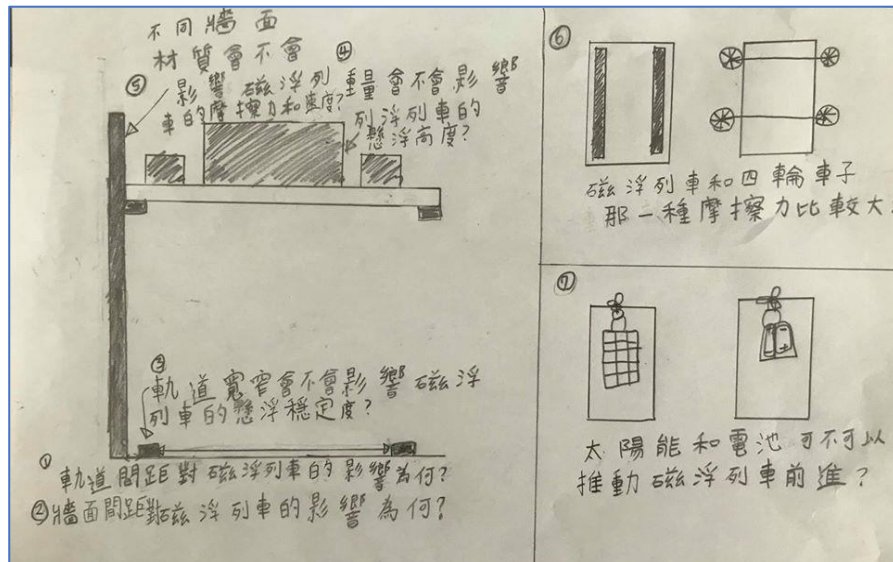 不同牆面
材質會不會
⑤ 影響磁浮列
車的摩擦力和速度?
④
重量會不會影響
列浮列車的
懸浮高度?
③
軌道寬窄會不會影響磁浮
列車的懸浮穩定度?
① 軌道間距對磁浮列車的影響為何?
②牆面間距對磁浮列車的影響為何?
⑥
磁浮列車和四輪車子
那一種摩擦力比較大?
⑦
太陽能和電池可不可以
推動磁浮列車前進?